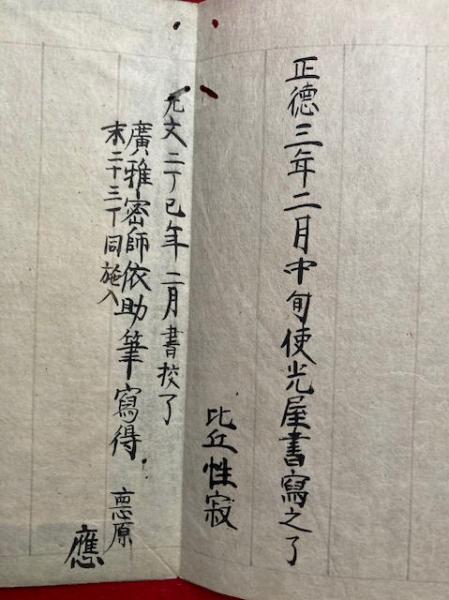 正德三年二月中旬使光屋書寫之了
比丘性寂
元文二丁巳年二月書挍了
廣雅密師依助筆寫得
末二十三丁同施入
原
應